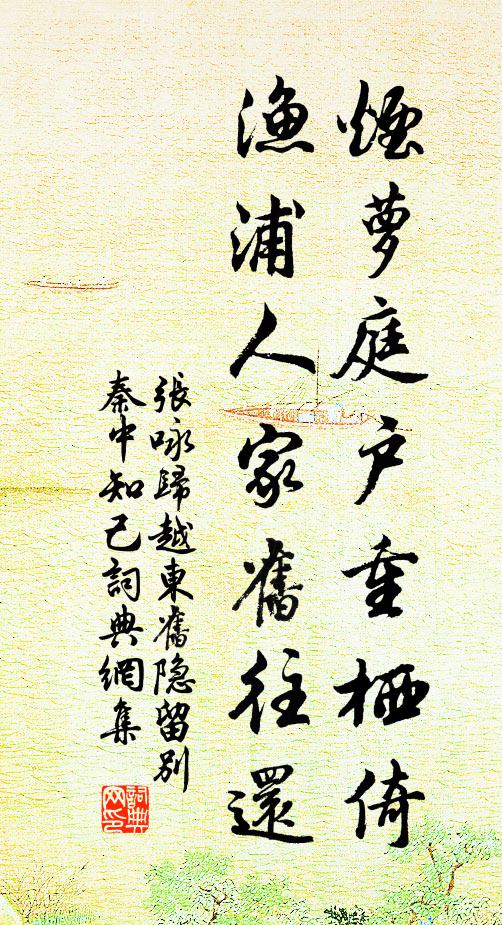 煙萝庭户重栖倚
漁浦人家舊往還
張咏歸越東舊隐留别
秦中知己詞典網集
詞典
网印